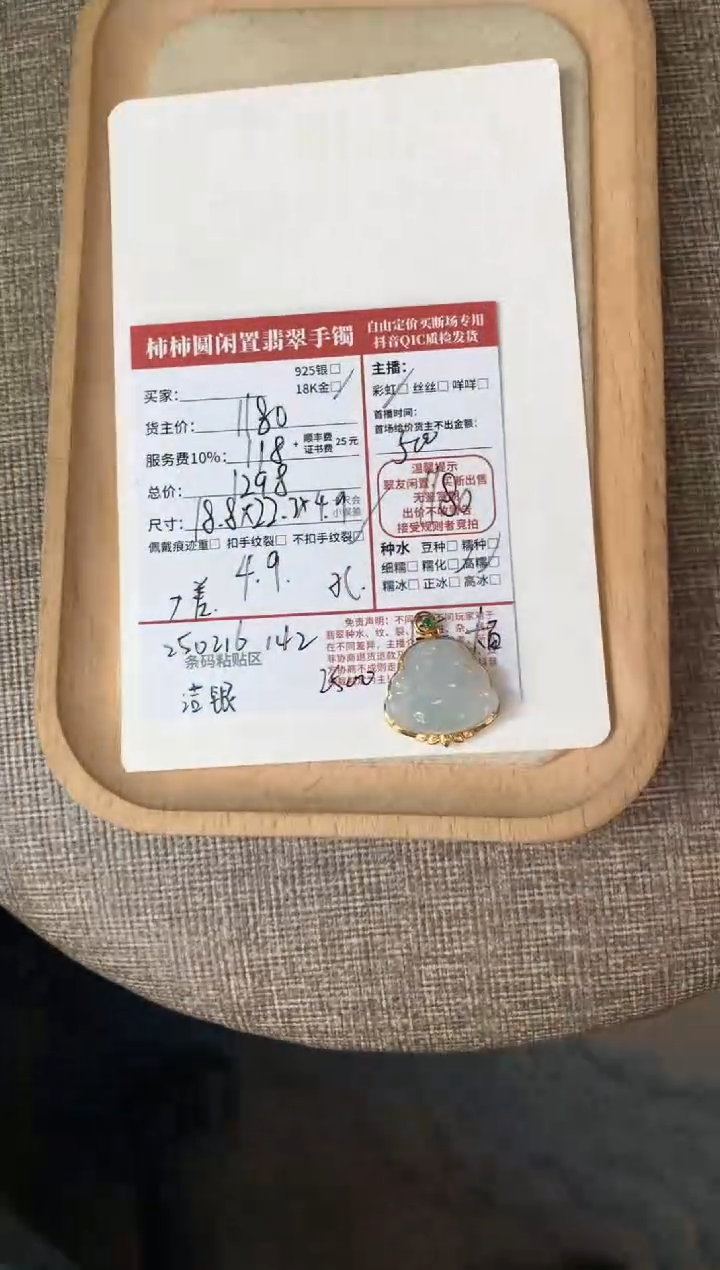 柿柿圆闲置翡翠手镯
自由定价买断场专用
抖音QIC质检发货
925银□
18K金□
买家:
货主价: 1180
服务费10%: 118 + 顺丰费 证书费 25元
总价: 1298
尺寸: 18.8×22.2×4.9
佩戴痕迹重□ 扣手纹裂□ 不扣手纹裂□
4.9.
主播:
彩虹□ 丝丝□ 咩咩□
首播时间:
首场给价货主不出金额:
500
温馨提示
翠友闲置 买断出售
出价不
接受规则者竞拍
种水 豆种□ 糯种□
细糯□ 糯化□ 高糯□
糯冰□ 正冰□ 高冰□
250216 142
条码粘贴区
免责声明:不同
翡翠种水、纹、裂、
在不同差异,主播
非协商退货退款